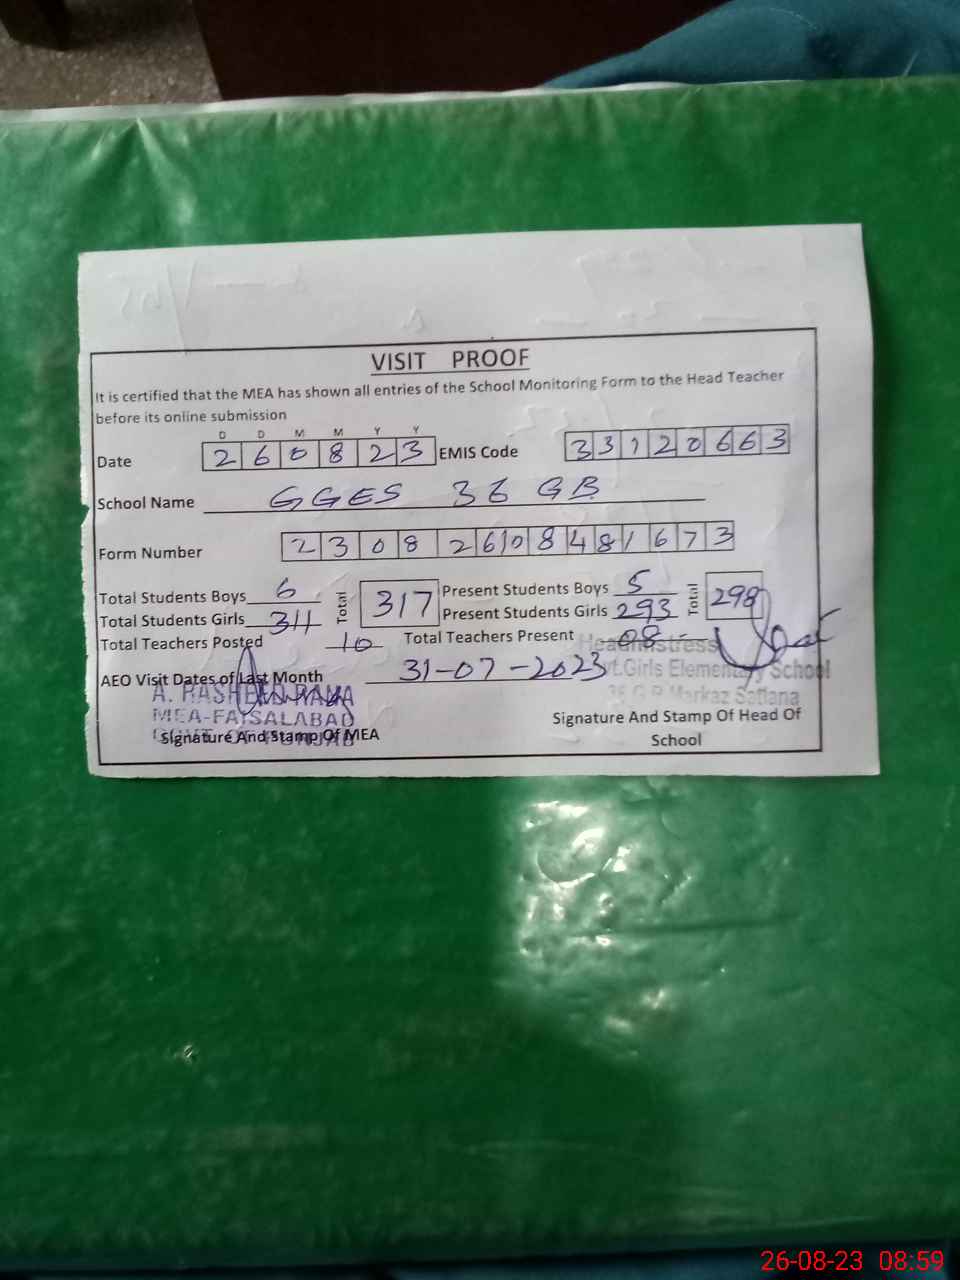 VISIT PROOF
It is certified that the MEA has shown all entries of the School Monitoring Form to the Head Teacher
before its online submission
D D M M Y Y
Date 2 6 0 8 2 3 EMIS Code 3 3 1 2 0 6 6 3
School Name GGES 36 GB
Form Number 2 3 0 8 2 6 0 8 4 8 1 6 7 3
Total Students Boys 6 Total 317 Present Students Boys 5 Total 298
Total Students Girls 311 Present Students Girls 293
Total Teachers Posted 10 Total Teachers Present 08
Headmistress
AEO Visit Dates of Last Month 31-07-2023
Govt.Girls Elementary School
36 G.B Markaz Satiana
A. RASHEED RANA
MEA-FAISALABAD
Signature And Stamp Of MEA
Signature And Stamp Of Head Of
School
26-08-23 08:59